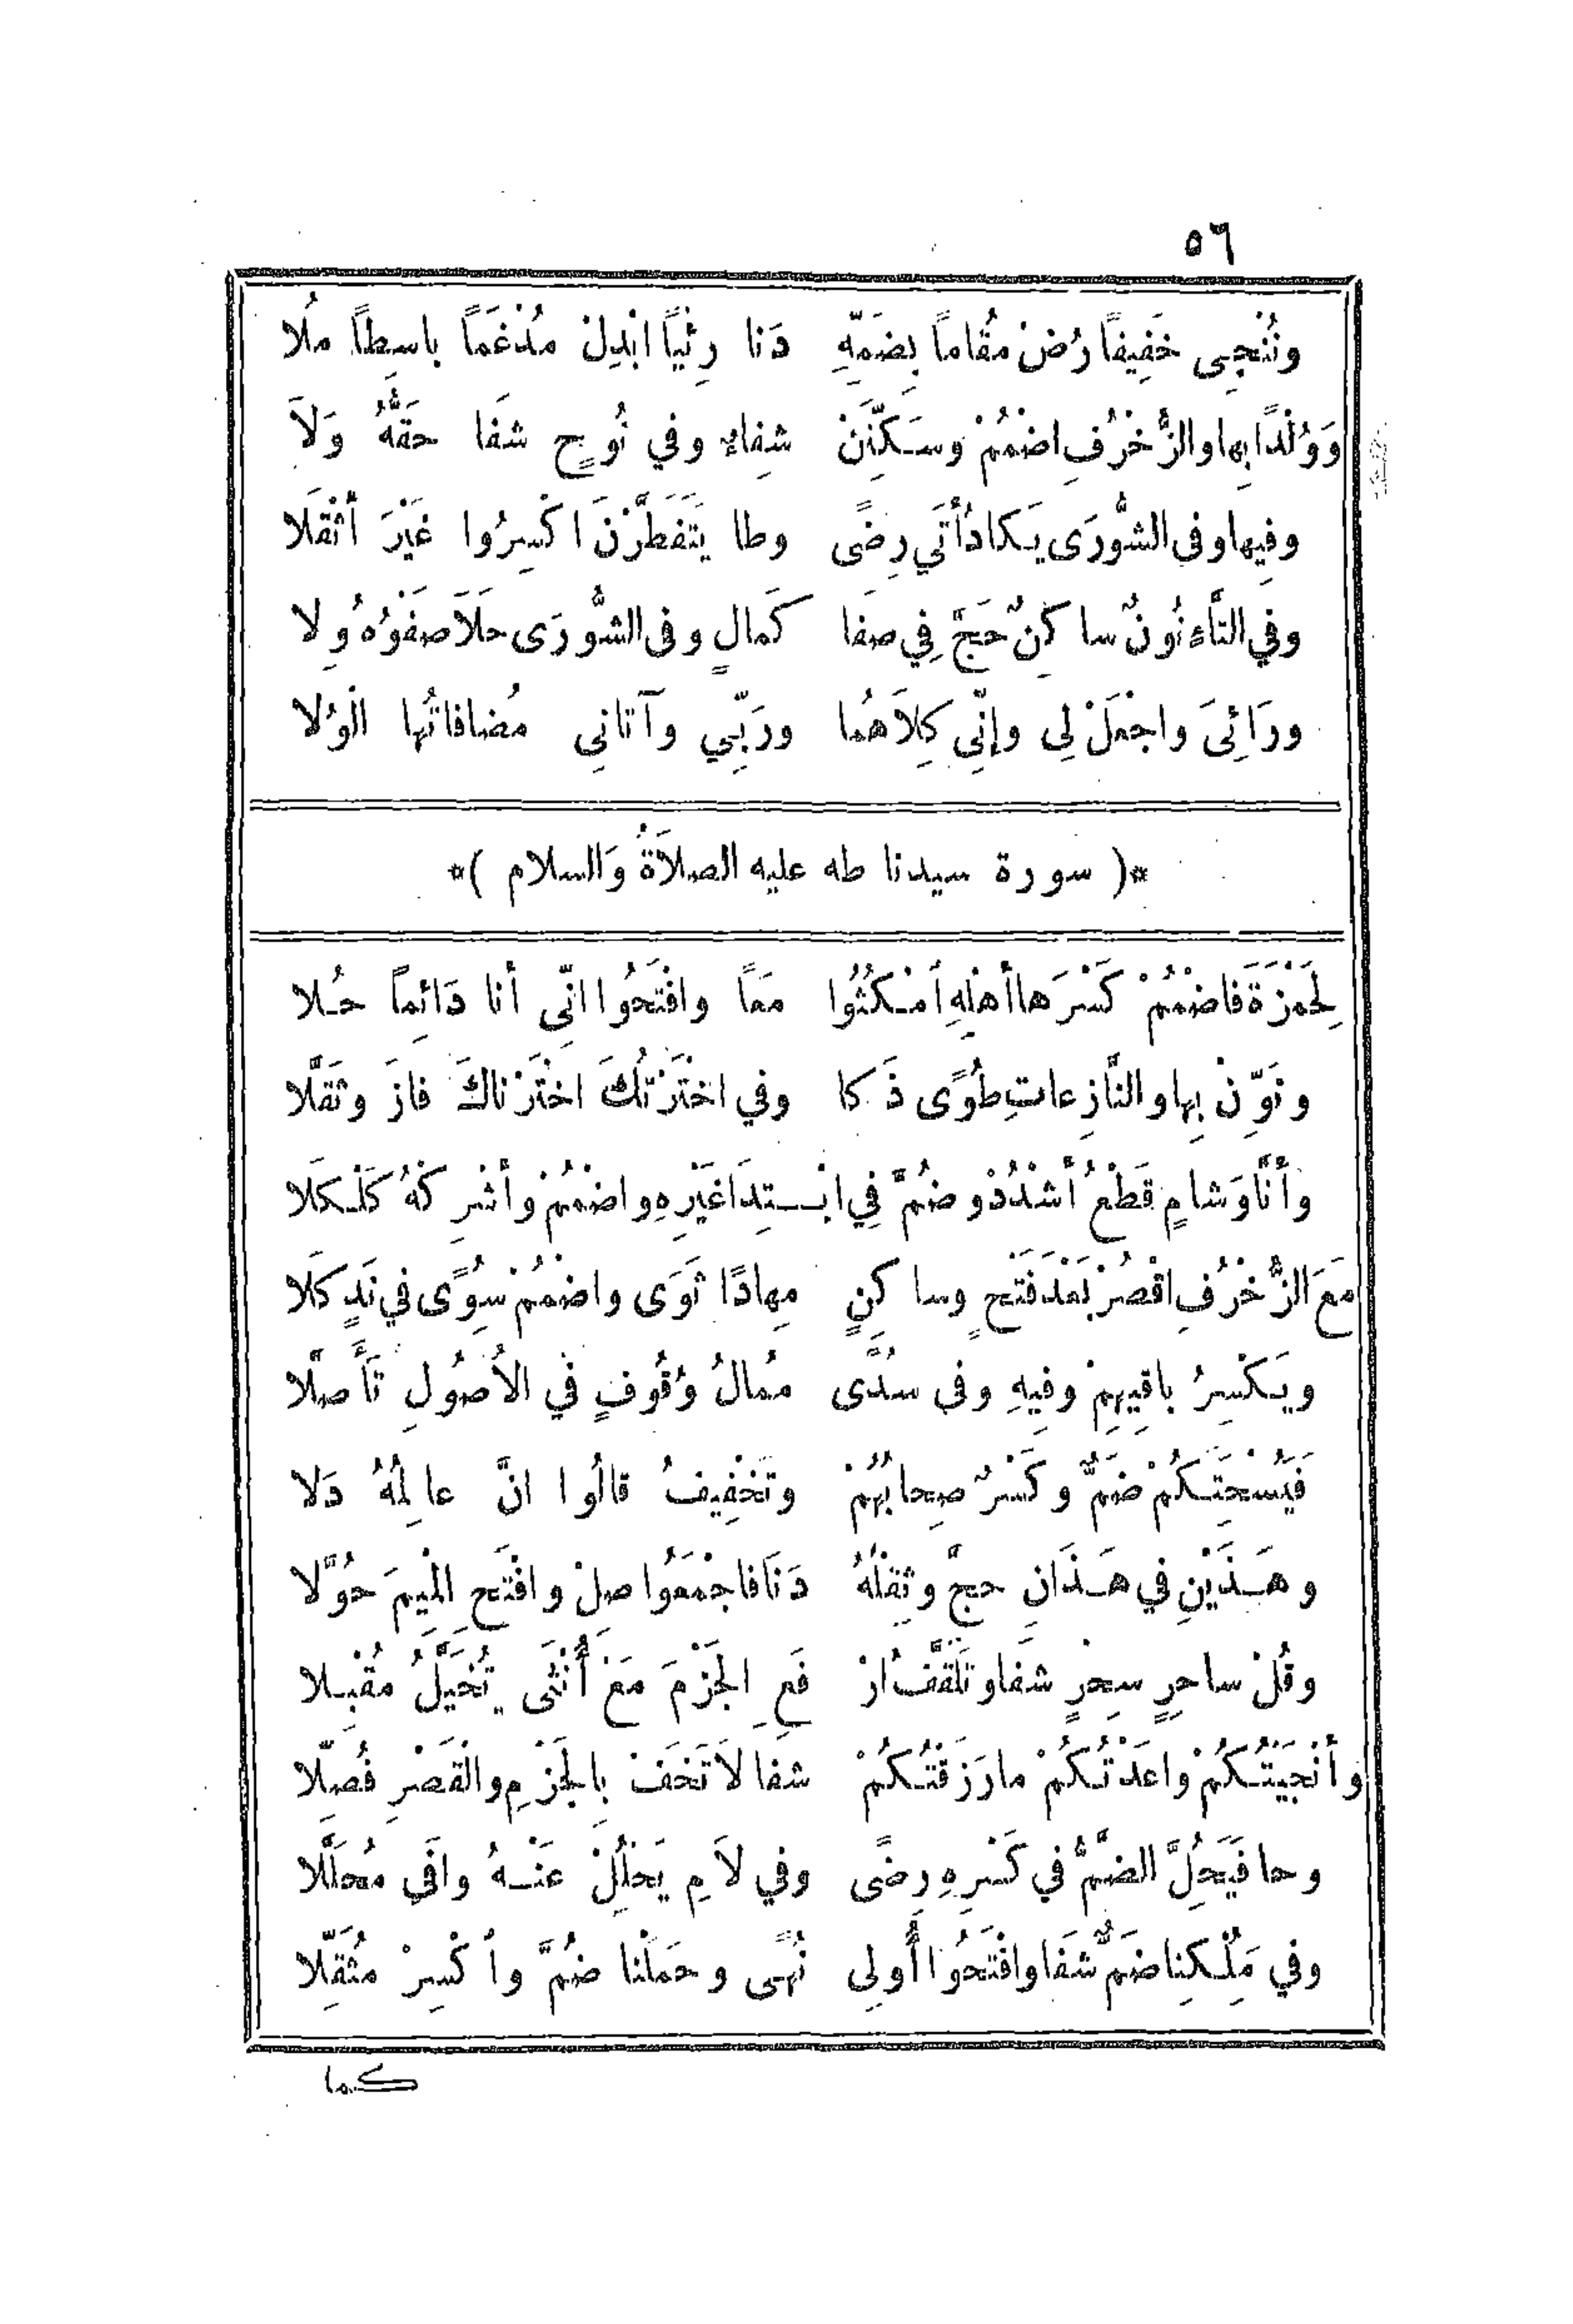 ٥٦
ونُنْجِى خَفِيفاً رُضْ مُقَاماً بِضَمِّهِ دَنا رِئْياً ابْدِلْ مُدْغَماً باسِطاً مُلا
وَوُلْدًا بِها والزُّخْرُفِ اضْمُمْ وسَكِّنَنْ شِفاءً وفي نُوحٍ شَفا حَقُّهُ وَلاَ
وفِيها وفى الشُّورَى يَكادُ أَتَى رِضًى وطا يَتَفَطَّرْنَ اكْسِرُوا غَيْرَ أَثْقَلا
وفي التَّاءِ نُونٌ ساكِنٌ حَجَّ فِي صَفا كَمالٍ وفى الشُّورَى حَلاَ صَفْوُهُ وِلا
ورَائِىَ واجْعَلْ لِى وإنِّى كِلاَهُما ورَبِّي وآتانِي مُضافاتُها الْوُلا
*( سورة سيدنا طه عليه الصلاَةُ وَالسلام )*
لِحَمْزَةَ فَاضْمُمْ كَسْرَها أَهْلِهِ امْكُثُوا مَعًا وافْتَحُوا انِّى أَنا دَائِماً حُلا
ونَوِّنْ بِها والنَّازِعاتِ طُوًى ذَكا وفي اخْتَرْتُكَ اخْتَرْناكَ فازَ وثَقَّلا
وأَنَّا وَشامٍ قَطْعُ أَشْدُدْ وضُمَّ فِي ابْتِدَا غَيْرِهِ واضْمُمْ وأَشْرِكْهُ كَلْكَلا
مَعَ الزُّخْرُفِ اقْصُرْ بَعْدَ فَتْحٍ وساكِنٍ مِهادًا ثَوَى واضْمُمْ سِوًى في نَدٍ كَلا
ويَكْسِرُ باقِيهِمْ وفِيهِ وفى سُدًى مُمالُ وُقُوفٍ في الأُصُولِ تَأَصَّلا
فَيُسْحِتَكُمْ ضَمٌّ وكَسْرٌ صِحابُهُمْ وتَخْفِيفُ قالُوا انَّ عالِمُهُ دَلا
وهَذَيْنِ في هَذَانِ حجَّ وثِقْلُهُ دَنَا فاجْمَعُوا صِلْ وافْتَحِ الْمِيمَ حُوَّلا
وقُلْ ساحِرٍ سِحْرٍ شَفَا وتَلَقَّفُ ارْ فَعِ الجَزْمَ مَعْ أُنْثَى تُخَيَّلُ مُقْبِلا
وأَنْجَيْتُكُمْ واعَدْتُكُمْ ما رَزَقْتُكُمْ شَفا لاَ تَخَفْ بِالْجَزْمِ والْقَصْرِ فُصِّلا
وحا فَيَحِلَّ الضَّمُّ في كَسْرِهِ رِضًى وفي لاَمِ يَحْلِلْ عَنْهُ وافَى مُحَلَّلا
وفي مَلْكِنا ضَمٌّ شَفَا وافْتَحُوا أُولِى نُهًى وحَمَلْنا ضُمَّ واكْسِرْ مُثَقِّلا
كما